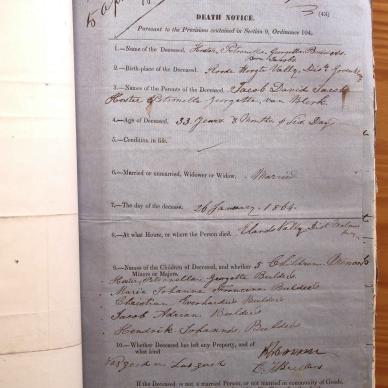 (43)
DEATH NOTICE.
Pursuant to the Provisions contained in Section 9, Ordinance 104.
1.—Name of the Deceased, Hester Petronella Georgetta
born Jacobs
2.—Birth-place of the Deceased, Roode Hoogte Vally, Dist
3.—Names of the Parents of the Deceased, Jacob David Jacobs
Hester Petronella Georgetta van Blerk
4.—Age of Deceased, 33 Years 8 Months & Days
5.—Condition in life.
6.—Married or unmarried, Widower or Widow, Married
7.—The day of the decease, 26 January 1864
8.—At what House, or where the Person died, Elands Vally, Dist
9.—Names of the Children of Deceased, and whether 5 Children Minors
Minors or Majors.
Hester Petronella Georgetta
Maria Johanna Francina
Christian Everhardus
Jacob Adrian
Hendrik Johannes
10.—Whether Deceased has left any Property, and of
what kind
Vasgoed en Losgoed
If the Deceased is not a married Person, or not married in community of Goods,